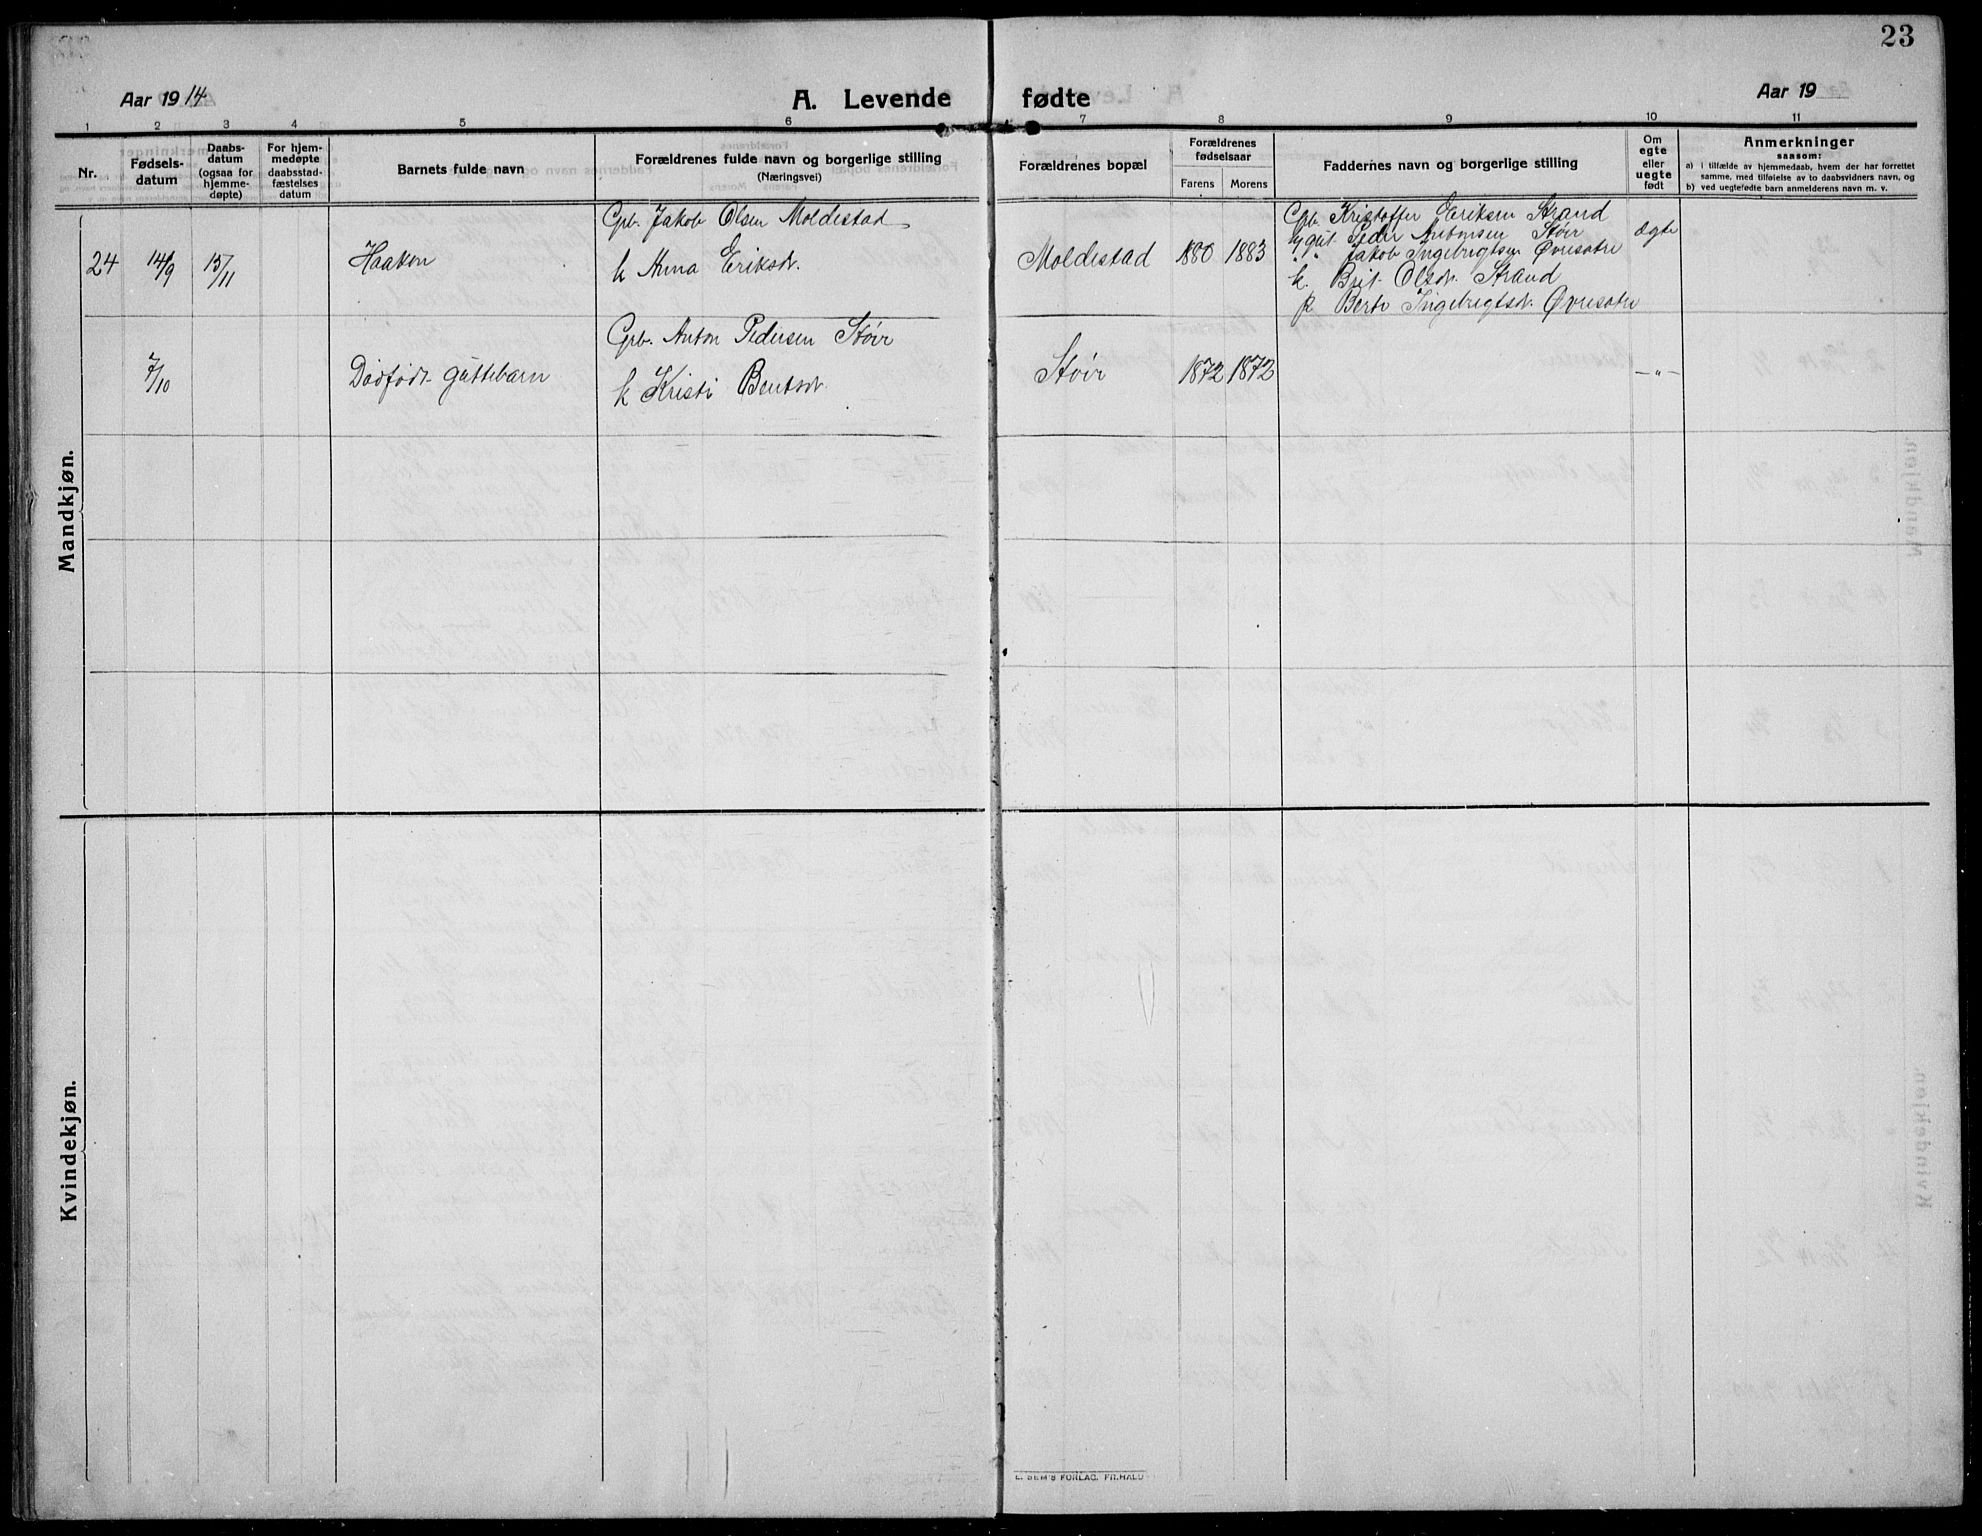 23
Aar 1914
A. Levende fødte
Aar 19
1 2 3 4 5 6 7 8 9 10 11
Nr.
Fødsels-
datum
Daabs-
datum
(ogsaa for
hjemme-
døpte)
For hjem-
medøpte
daabsstad-
fæstelses
datum
Barnets fulde navn
Forældrenes fulde navn og borgerlige stilling
(Næringsvei)
Forældrenes bopæl
Forældrenes
fødselsaar
Farens Morens
Faddernes navn og borgerlige stilling
Om
egte
eller
uegte
født
Anmerkninger
saasom:
a) i tilfælde av hjemmedaab, hvem der har forrettet
samme, med tilføielse av to daabsvidners navn, og
b) ved uegtefødte barn anmelderens navn m. v.
Mandkjøn.
24 14/9 15/11 Haakon
Grb. Jakob Olsen Moldestad
k Anna Eriksdr.
Moldestad 1880 1883
Grb. Kristoffer Eriksen Strand
ygut Peder Antonsen Støir
" " Jakob Ingebrigtsen Øvresætre
k. Brit Olsdr. Strand
p. Berte Ingebrigtsdr. Øvresætre
ægte
7/10 Dødfødt guttebarn
Grb. Anton Pedersen Støir
k Kristi Bentsdr.
Støir 1872 1872
—"—
Kvindekjøn.
E. SEM'S FORLAG, FR.HALD